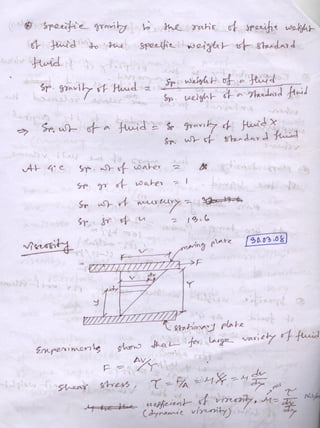 ⑥ Specific gravity is the ratio of specific weight
of fluid to the specific weight of standard
fluid.
Sp. gravity of fluid = Sp. weight of a fluid / Sp. weight of a standard fluid
⇒ Sp. wt of a fluid = Sp gravity of fluid X
Sp. wt of standard fluid
At 4°C sp. wt of water =
sp. gr of water = 1
Sp wt of mercury =
Sp. gr of " = 13.6
Viscosity
moving plate
30.03.08
V
→F
y
Y
Stationary plate
Experiments show that for large variety of fluid
F = AV/Y
Shear stress, τ = F/A = μ V/Y = μ du/dy
coefficient of viscosity, μ = τ / du/dy
(dynamic viscosity)